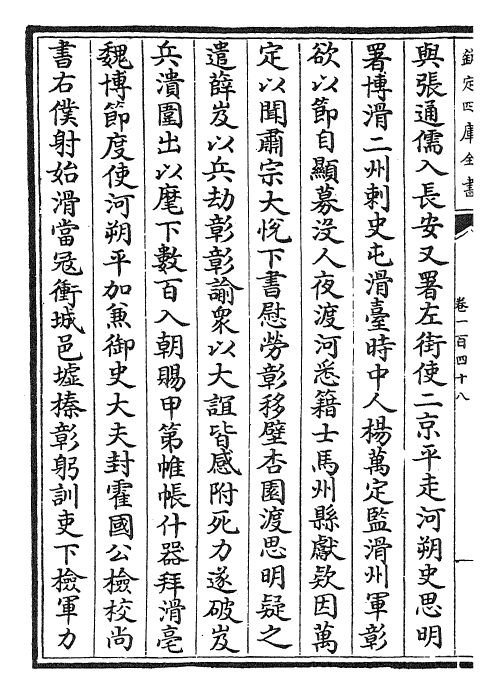 欽定四庫全書
卷一百四十八
與張通儒入長安又署左街使二京平走河朔史思明
署博滑二州刺史屯滑臺時中人楊萬定監滑州軍彰
欲以節自顯募没人夜渡河悉籍士馬州縣獻欵因萬
定以聞肅宗大悅下書慰勞彰移壁杏園渡思明疑之
遣薛岌以兵劫彰彰諭衆以大誼皆感附死力遂破岌
兵潰圍出以麾下數百入朝賜甲第帷帳什器拜滑亳
魏博節度使河朔平加兼御史大夫封霍國公檢校尚
書右僕射始滑當冦衝城邑墟榛彰躬訓吏下檢軍力